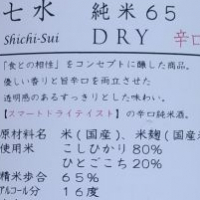 七水 純米65
Shichi-Sui DRY 辛口
「食との相性」をコンセプトに醸した商品。
優しい香りと旨辛口を両立させた
透明感のあるすっきりとした味わい。
【スマートドライテイスト】の辛口純米酒。
原材料名 米(国産)、米麹(国産
使用米 こしひかり80%
ひとごこち20%
精米歩合 65%
アルコール分 16度